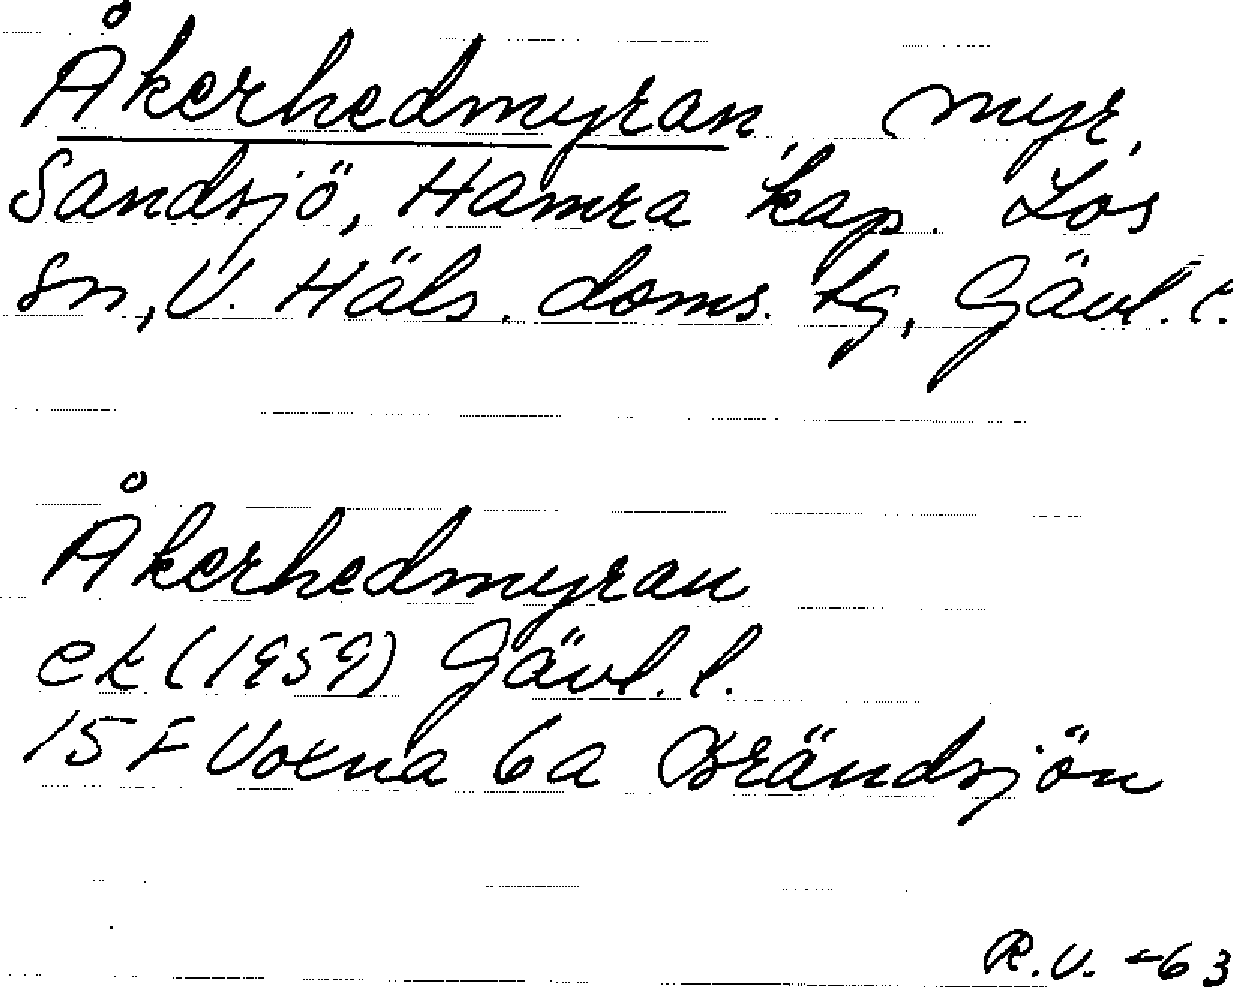 Åkerhedmyran, myr,
Sandsjö, Hamra kap. Los
sn, V. Häls. doms. tg, Gävl. l.
Åkerhedmyran
ek (1959) Gävl. l.
15 F Voxna 6a Brändsjön
R.V. -63